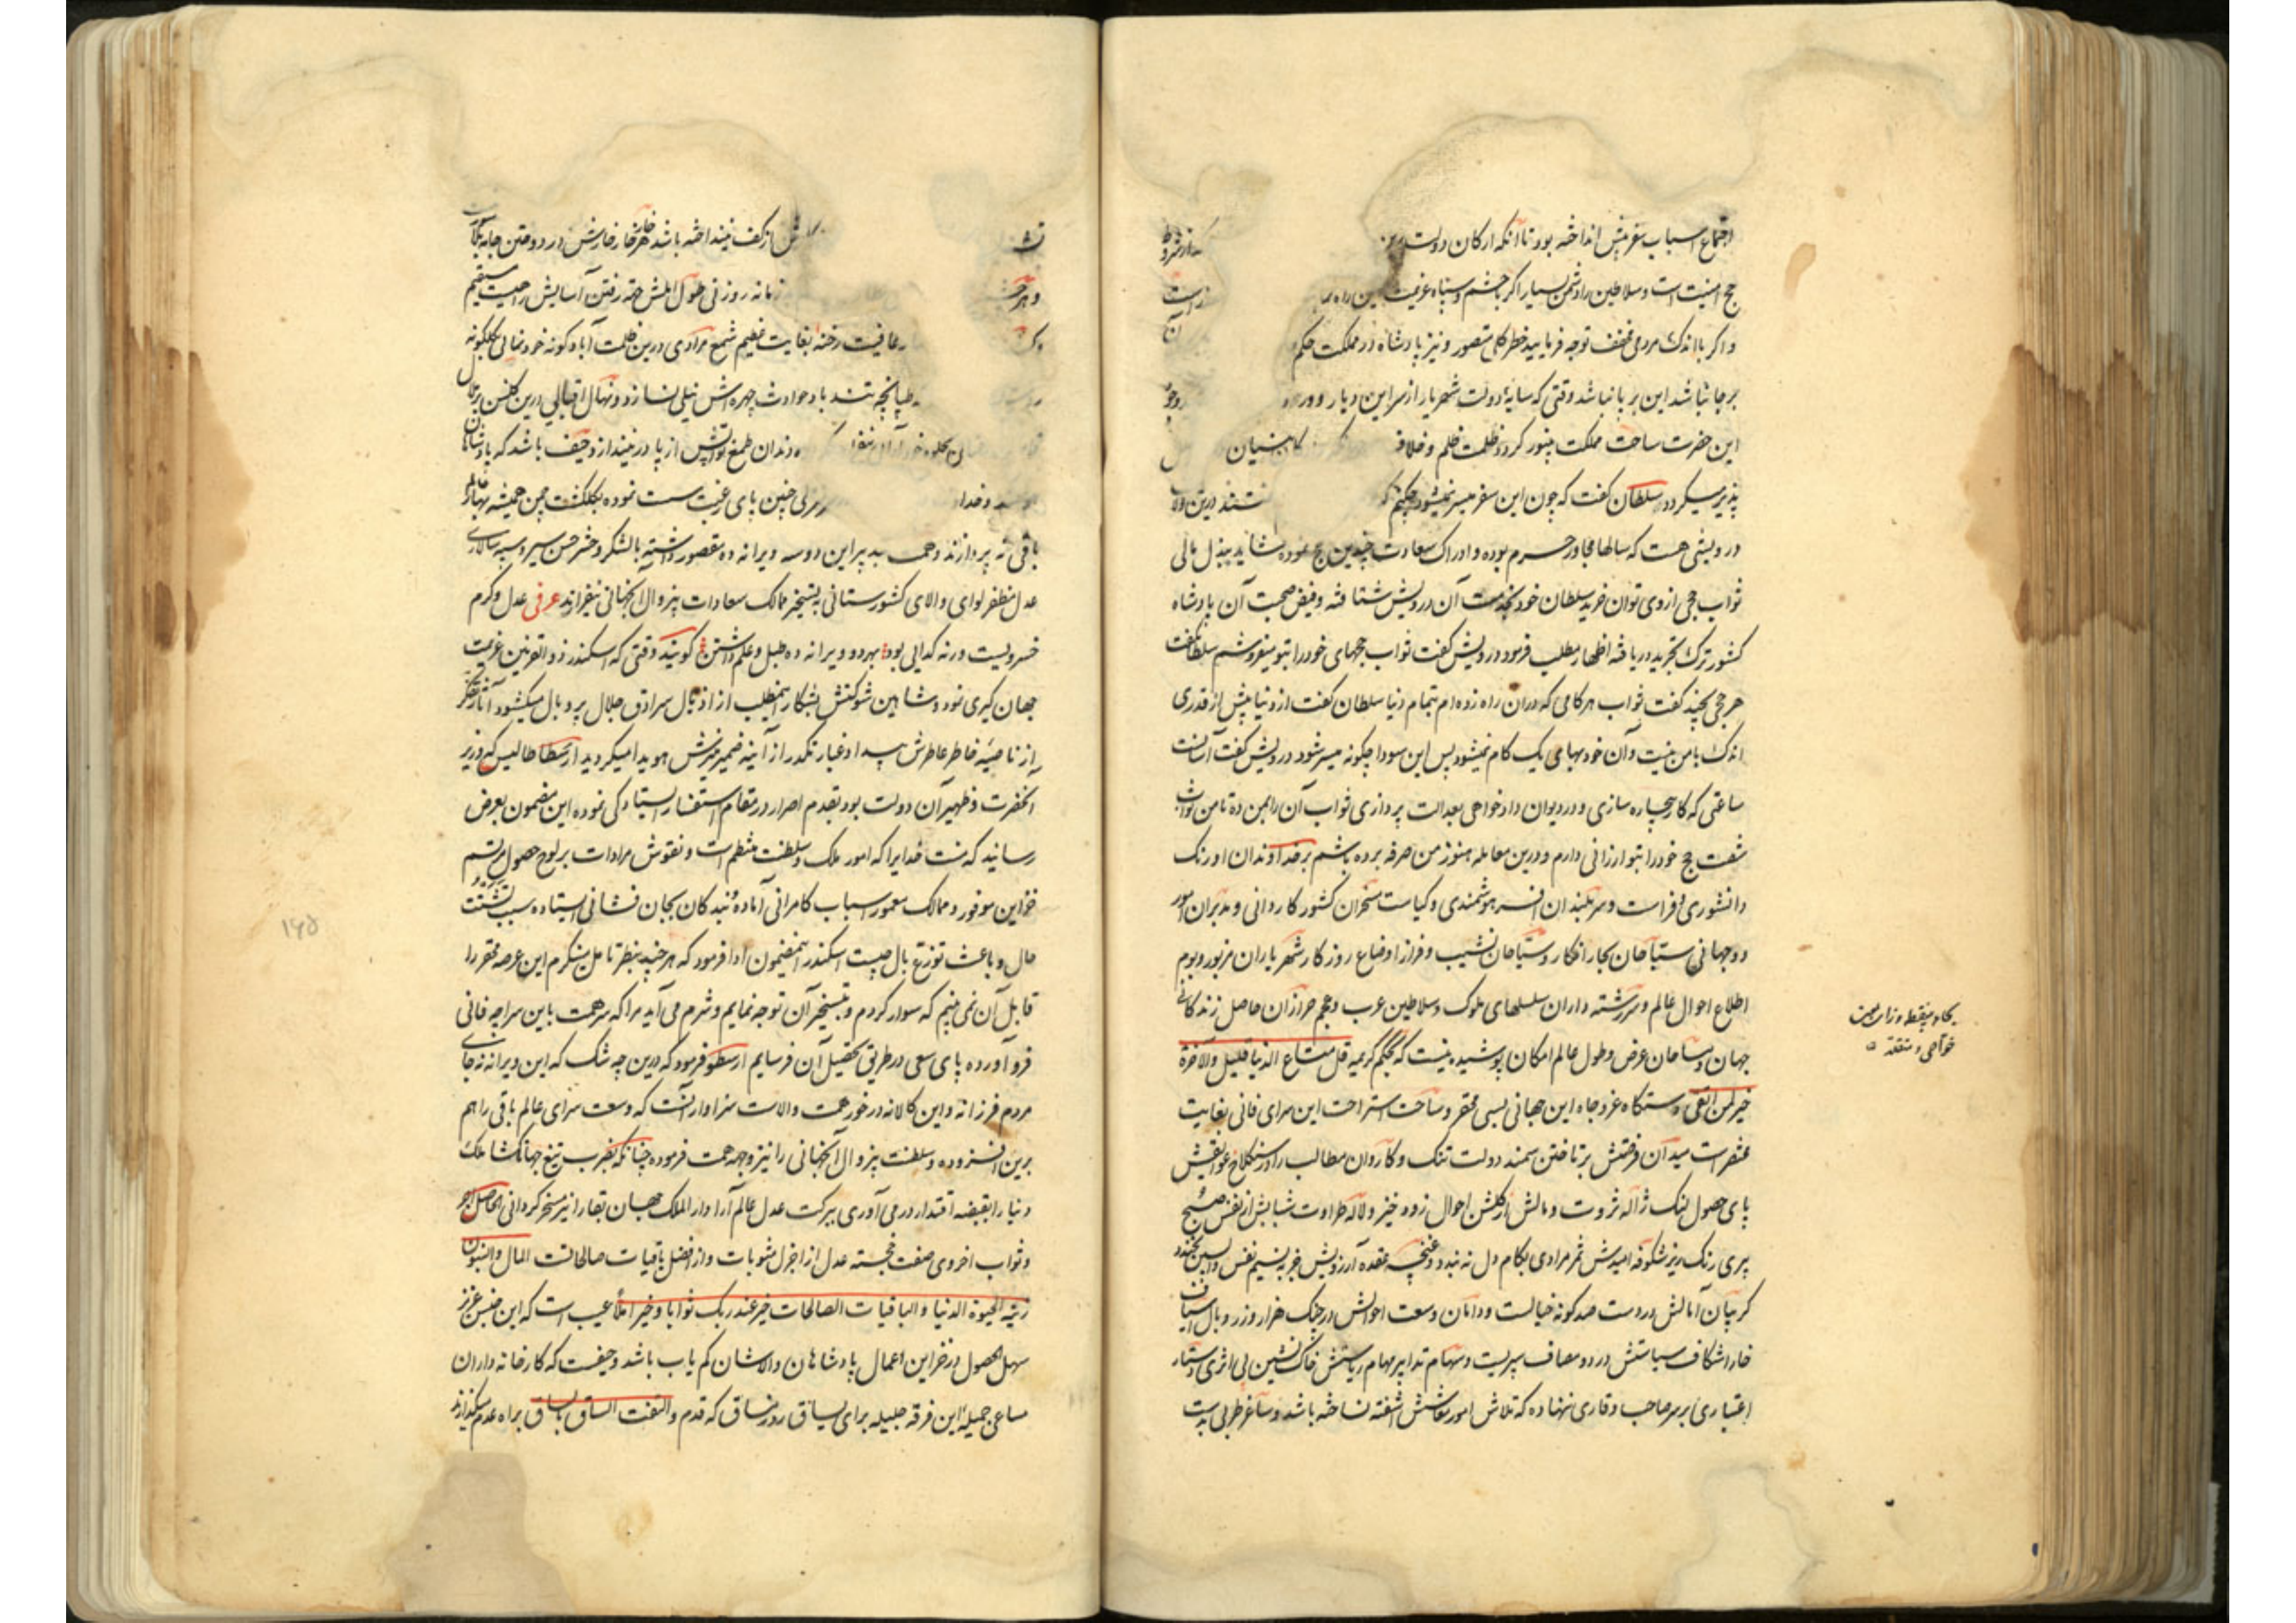 اجتماع اسباب سفر پیش انداخته بود تا آنکه ارکان دولت
حج امنیت است و سلاطین را دشمن بسیار اگر با حشم و سپاه عزیمت این راه
و اگر با اندک مردمی مخفف توجه فرمایید خطر کلی متصور و نیز پادشاه در مملکت حکم
بر جا نباشد این بر پا نباشد وقتی که سایهٔ دولت شهریار از سر این دیار دور
این حضرت ساحت مملکت بی نور گردد ظلمت ظلم و خلاف
پذیر میگردد سلطان گفت که چون این سفر میسر نمیشود چکنم که درین ولا
درویشی هست که سالها مجاور حرم بوده و ادراک سعادت چندین حج نموده شاید ببذل مالی
ثواب حجی از وی توان خرید سلطان خود بخدمت آن درویش شتافته و فیض صحبت آن پادشاه
کشور ترک و تجرید دریافته اظهار مطلب فرمود درویش گفت ثواب حجهای خود را بتو میفروشم سلطان گفت
هر حجی بچند گفت ثواب هر گامی که در آن راه زده ام بتمام دنیا سلطان گفت از دنیا بیش از قدری
اندک با من نیست و آن خود بهای یک گام نمیشود پس این سودا چگونه میسر شود درویش گفت آسانست
ساعتی که کار بیچاره سازی و در دیوان دادخواهی بعدالت پردازی ثواب آن را بمن ده تا من ثواب
شصت حج خود را بتو ارزانی دارم و درین معامله هنوز من صرفه برده باشم بر خداوندان اورنگ
دانشوری و فراست و سربلندان افسر هوشمندی و کیاست مسخران کشور کاردانی و مدبران امور
دو جهانی سباحان بحار افکار و سیاحان نشیب و فراز اوضاع روزگار شهریاران مرز و بوم
اطلاع احوال عالم و سررشته داران سلسلهای ملوک و سلاطین عرب و عجم حرازان حاصل زندگانی
جهان و مساحان عرض و طول عالم امکان پوشیده نیست که بحکم کریمه قل متاع الدنیا قلیل والآخرة
خیر لمن اتقی دستگاه عز و جاه این جهانی بسی محقر و ساحت استراحت این سرای فانی بغایت
مختصر است میدان فرصتش بر تاختن سمند دولت تنگ و کاروان مطالب را در سنگلاخ عوایقش
پای حصول لنگ ژاله ثروت و مالش از گلشن احوال زود خیز و لاله طراوت شبابش از نفس صبح
پیری رنگ ریز شکوفه امیدش ثمر مرادی بکام دل نه بندد و غنچه عقده آرزویش جز به نسیم نفس واپسین نخندد
گریبان آمالش در دست صد گونه خیالست و دامان وسعت احوالش در چنگ هزار وزر و وبال اسیاف
خارا شکاف سیاستش در دو مصاف سپریست و سهام تدابیر مهام ریاستش خاک نشین بی اثری دستار
اعتباری بر سر صاحب وقاری ننهاده که تلاش امور معاشش آشفته نساخته باشد و ساغر طربی بدست
بحاء بی نقطه و زای
از کف نینداخته باشد
زمانه روزنی طول املش رفتن آسایش راحیست مستقیم
عافیت رخنه بغایت عظیم شمع مرادی درین ظلمت آباد کونه خودنمائی بگلگونه
طپانچه تند باد حوادث چهره اش نیلی نسازد و نهال اقبالی درین گلشن
دندان طمع از پا در نیندازد حیف باشد که پادشاهان
منزلی چنین پای رغبت سست نموده بگلگشت چمن همیشه بهار عالم
باقی نه پردازند و همت بدین دو سه ویرانه ده مقصور داشته با لشکر و حشر حسن سیر و سپه سالاری
عدل مظفر لوای والای کشورستانی به تسخیر ممالک سعادات بیزوال آنجهانی نیفرازند عرفی عدل و کرم
خسرویست ورنه گدایی بود بهر دو ویرانه ده طبل و علم داشتن گویند وقتی که اسکندر ذوالقرنین عزیمت
جهان گیری نمود و شاهین شوکتش بشکار این مطلب از اذیال سرادق جلال پر و بال میگشود آثار تفکر
از ناصیه خاطر عاطرش پیدا و غبار تکدر از آینه ضمیر منیرش هویدا میگردید ارسطاطالیس که وزیر
آنحضرت و ظهیر آن دولت بود بقدم اصرار در مقام استفسار ایستادگی نموده این مضمون بعرض
رسانید که منت خدایرا که امور ملک و سلطنت منتظم است و نقوش مرادات بر لوح حصول مرتسم
خزاین موفور و ممالک معمور اسباب کامرانی آماده و بندگان بجان فشانی ایستاده سبب تشتت
حال و باعث توزع بال چیست اسکندر اینمضمون ادا فرمود که هر چند بنظر تامل مینگرم این عرصه محقر را
قابل آن نمی بینم که سوار گردم و بتسخیر آن توجه نمایم و شرم می آید مرا که سر همت باین سراچه فانی
فرو آورده پای سعی در طریق تحصیل آن فرسایم ارسطو فرمود که درین چه شک که این ویرانه نه جای
مردم فرزانه و این کالا نه در خور همت والاست سزاوار آنست که وسعت سرای عالم باقی را هم
برین افزوده و سلطنت بیزوال آنجهانی را نیز وجهه همت فرموده چنانکه بضرب تیغ جهانگشا ملک
دنیا را بقبضه اقتدار در می آوری ببرکت عدل عالم آرا دار الملک جهان بقا را نیز مسخر گردانی الحاصل اجر
و ثواب اخروی صفت خجسته عدل از اجزل مثوبات و از افضل باقیات صالحاتست المال والبنون
زینة الحیوة الدنیا والباقیات الصالحات خیر عند ربک ثوابا وخیر املا عیب است که این جنس عزیز
سهل الحصول در خزاین اعمال پادشاهان والاشان کم یاب باشد و حیفست که کارخانه داران
مساعی جمیله این فرقه جلیله برای یساق روز مساق که قدم والتفت الساق بالساق براه عدم میگذارند
۱۶۵